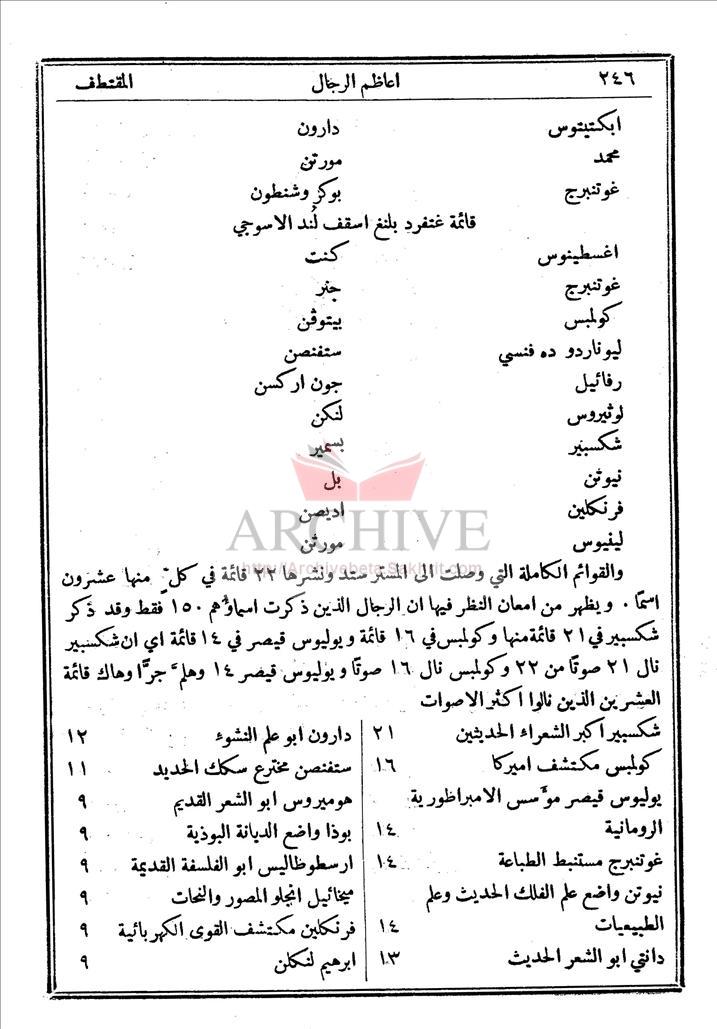 ٢٤٦ اعاظم الرجال المقتطف
ابكتيتوس دارون
محمد مورتن
غوتنبرج بوكر وشنطون
قائمة غتفرد بلنغ اسقف لُند الاسوجي
اغسطينوس كنت
غوتنبرج جنر
كولمبس بيتوڤن
ليوناردو ده فنسي ستفنصن
رفائيل جون اركسن
لوثيروس لنكن
شكسبير بسمير
نيوتن بل
فرنكلين اديصن
لينيوس مورثن
ARCHIVE
http://Archivebeta.Sakhrit.com
والقوائم الكاملة التي وصلت الى المستر ستد ونشرها ٢٢ قائمة في كلٍّ منها عشرون
اسمًا . ويظهر من امعان النظر فيها ان الرجال الذين ذكرت اسماؤهم ١٥٠ فقط وقد ذكر
شكسبير في ٢١ قائمة منها وكولمبس في ١٦ قائمة ويوليوس قيصر في ١٤ قائمة اي ان شكسبير
نال ٢١ صوتًا من ٢٢ وكولمبس نال ١٦ صوتًا ويوليوس قيصر ١٤ وهلمَّ جرًّا وهاك قائمة
العشرين الذين نالوا اكثر الاصوات
شكسبير اكبر الشعراء الحديثين ٢١
كولمبس مكتشف اميركا ١٦
يوليوس قيصر مؤسس الامبراظورية
الرومانية ١٤
غوتنبرج مستنبط الطباعة ١٤
نيوتن واضع علم الفلك الحديث وعلم
الطبيعيات ١٤
دانتي ابو الشعر الحديث ١٣
دارون ابو علم النشوء ١٢
ستفنصن مخترع سكك الحديد ١١
هوميروس ابو الشعر القديم ٩
بوذا واضع الديانة البوذية ٩
ارسطوطاليس ابو الفلسفة القديمة ٩
ميخائيل انجلو المصور والنحات ٩
فرنكلين مكتشف القوى الكهربائية ٩
ابرهيم لنكلن ٩